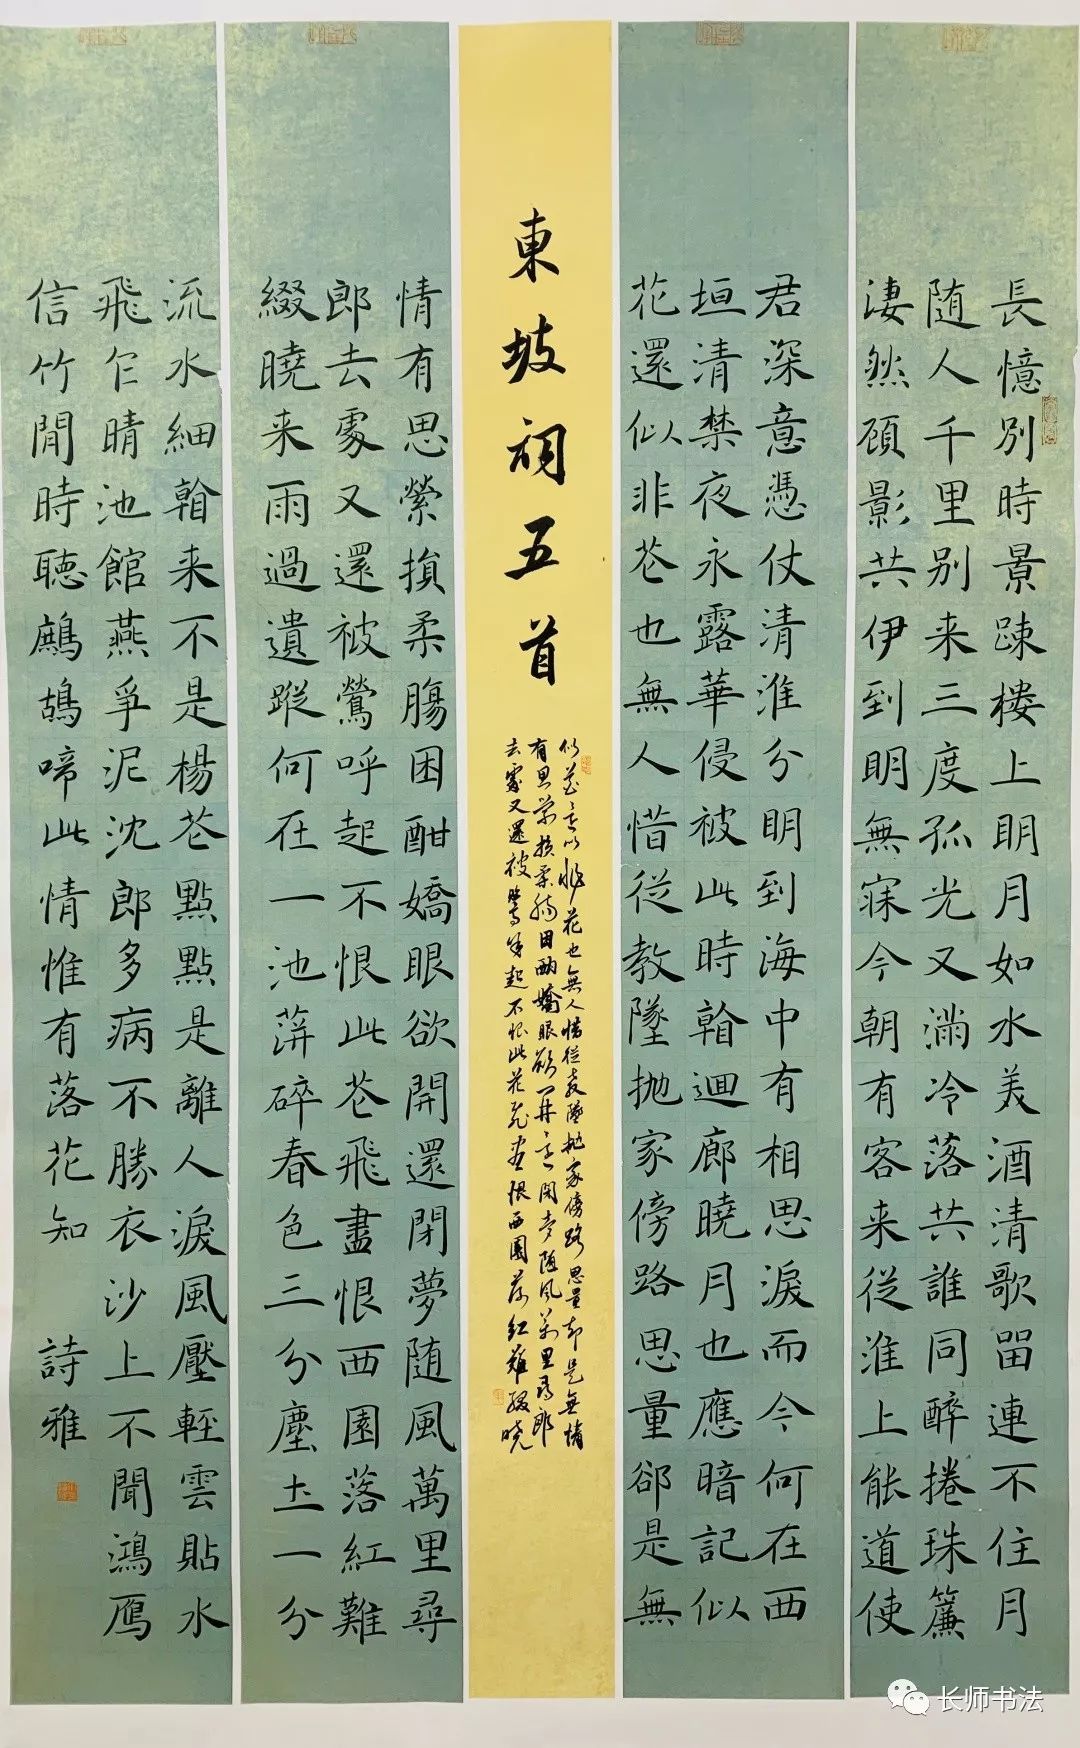 長憶別時景踈樓上明月如水美酒清歌留連不住月
随人千里别来三度孤光又滿冷落共誰同醉捲珠簾
淒然顧影共伊到明無寐今朝有客来從淮上能道使
君深意憑仗清淮分明到海中有相思淚而今何在西
垣清禁夜永露華侵被此時翰迴廊曉月也應暗記似
花還似非苍也無人惜從教墜抛家傍路思量郤是無
東坡詞五首
似花還似非花也無人惜從教墜抛家傍路思量却是無情
有思縈損柔腸困酣嬌眼欲開還閉夢随風萬里尋郎
去處又還被鶯呼起不恨此花飛盡恨西園落紅難綴曉
情有思縈損柔腸困酣嬌眼欲開還閉夢随風萬里尋
郎去處又還被鶯呼起不恨此苍飛盡恨西園落紅難
綴曉来雨過遺蹤何在一池萍碎春色三分塵土一分
流水細翰来不是楊苍點點是離人淚風壓輕雲貼水
飛乍晴池館燕爭泥沈郎多病不勝衣沙上不聞鴻鴈
信竹間時聽鷓鴣啼此情惟有落花知 詩雅
长师书法